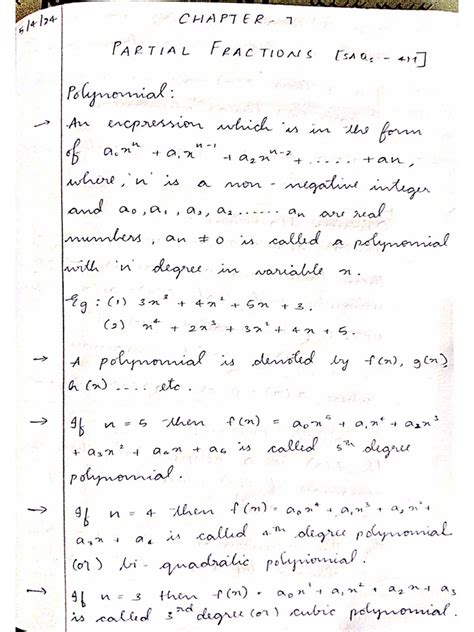 5/4/24
CHAPTER - 7
PARTIAL FRACTIONS [SAQs - 4M]
Polynomial :
→ An expression which is in the form
of a₀xⁿ + a₁xⁿ⁻¹ + a₂xⁿ⁻² + ...... + an,
where, 'n' is a non - negative integer
and a₀, a₁, a₂, a₂ ...... an are real
numbers, an ≠ 0 is called a polynomial
with 'n' degree in variable x.
Eg : (1) 3x³ + 4x² + 5x + 3.
(2) x⁴ + 2x³ + 3x² + 4x + 5.
→ A polynomial is denoted by f(x), g(x),
h(x) .... etc.
→ If n = 5 then f(x) = a₀x⁵ + a₁x⁴ + a₂x³
+ a₃x² + a₄x + a₅ is called 5th degree
polynomial.
→ If n = 4 then f(x) = a₀x⁴ + a₁x³ + a₂x² +
a₃x + a₄ is called 4th degree polynomial
(or) bi - quadratic polynomial.
→ If n = 3 then f(x) = a₀x³ + a₁x² + a₂x + a₃
is called 3rd degree (or) cubic polynomial.